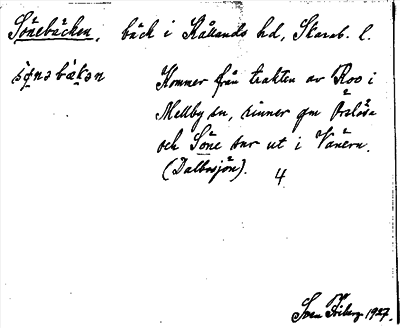 Sönebäcken, bäck i Kållands hd, Skarab. l.
Kommer från trakten av Roo i
Mellby sn, rinner gm Örslösa
och Söne snr ut i Vänern.
(Dalbosjön). 4
Sven Friberg 1927.